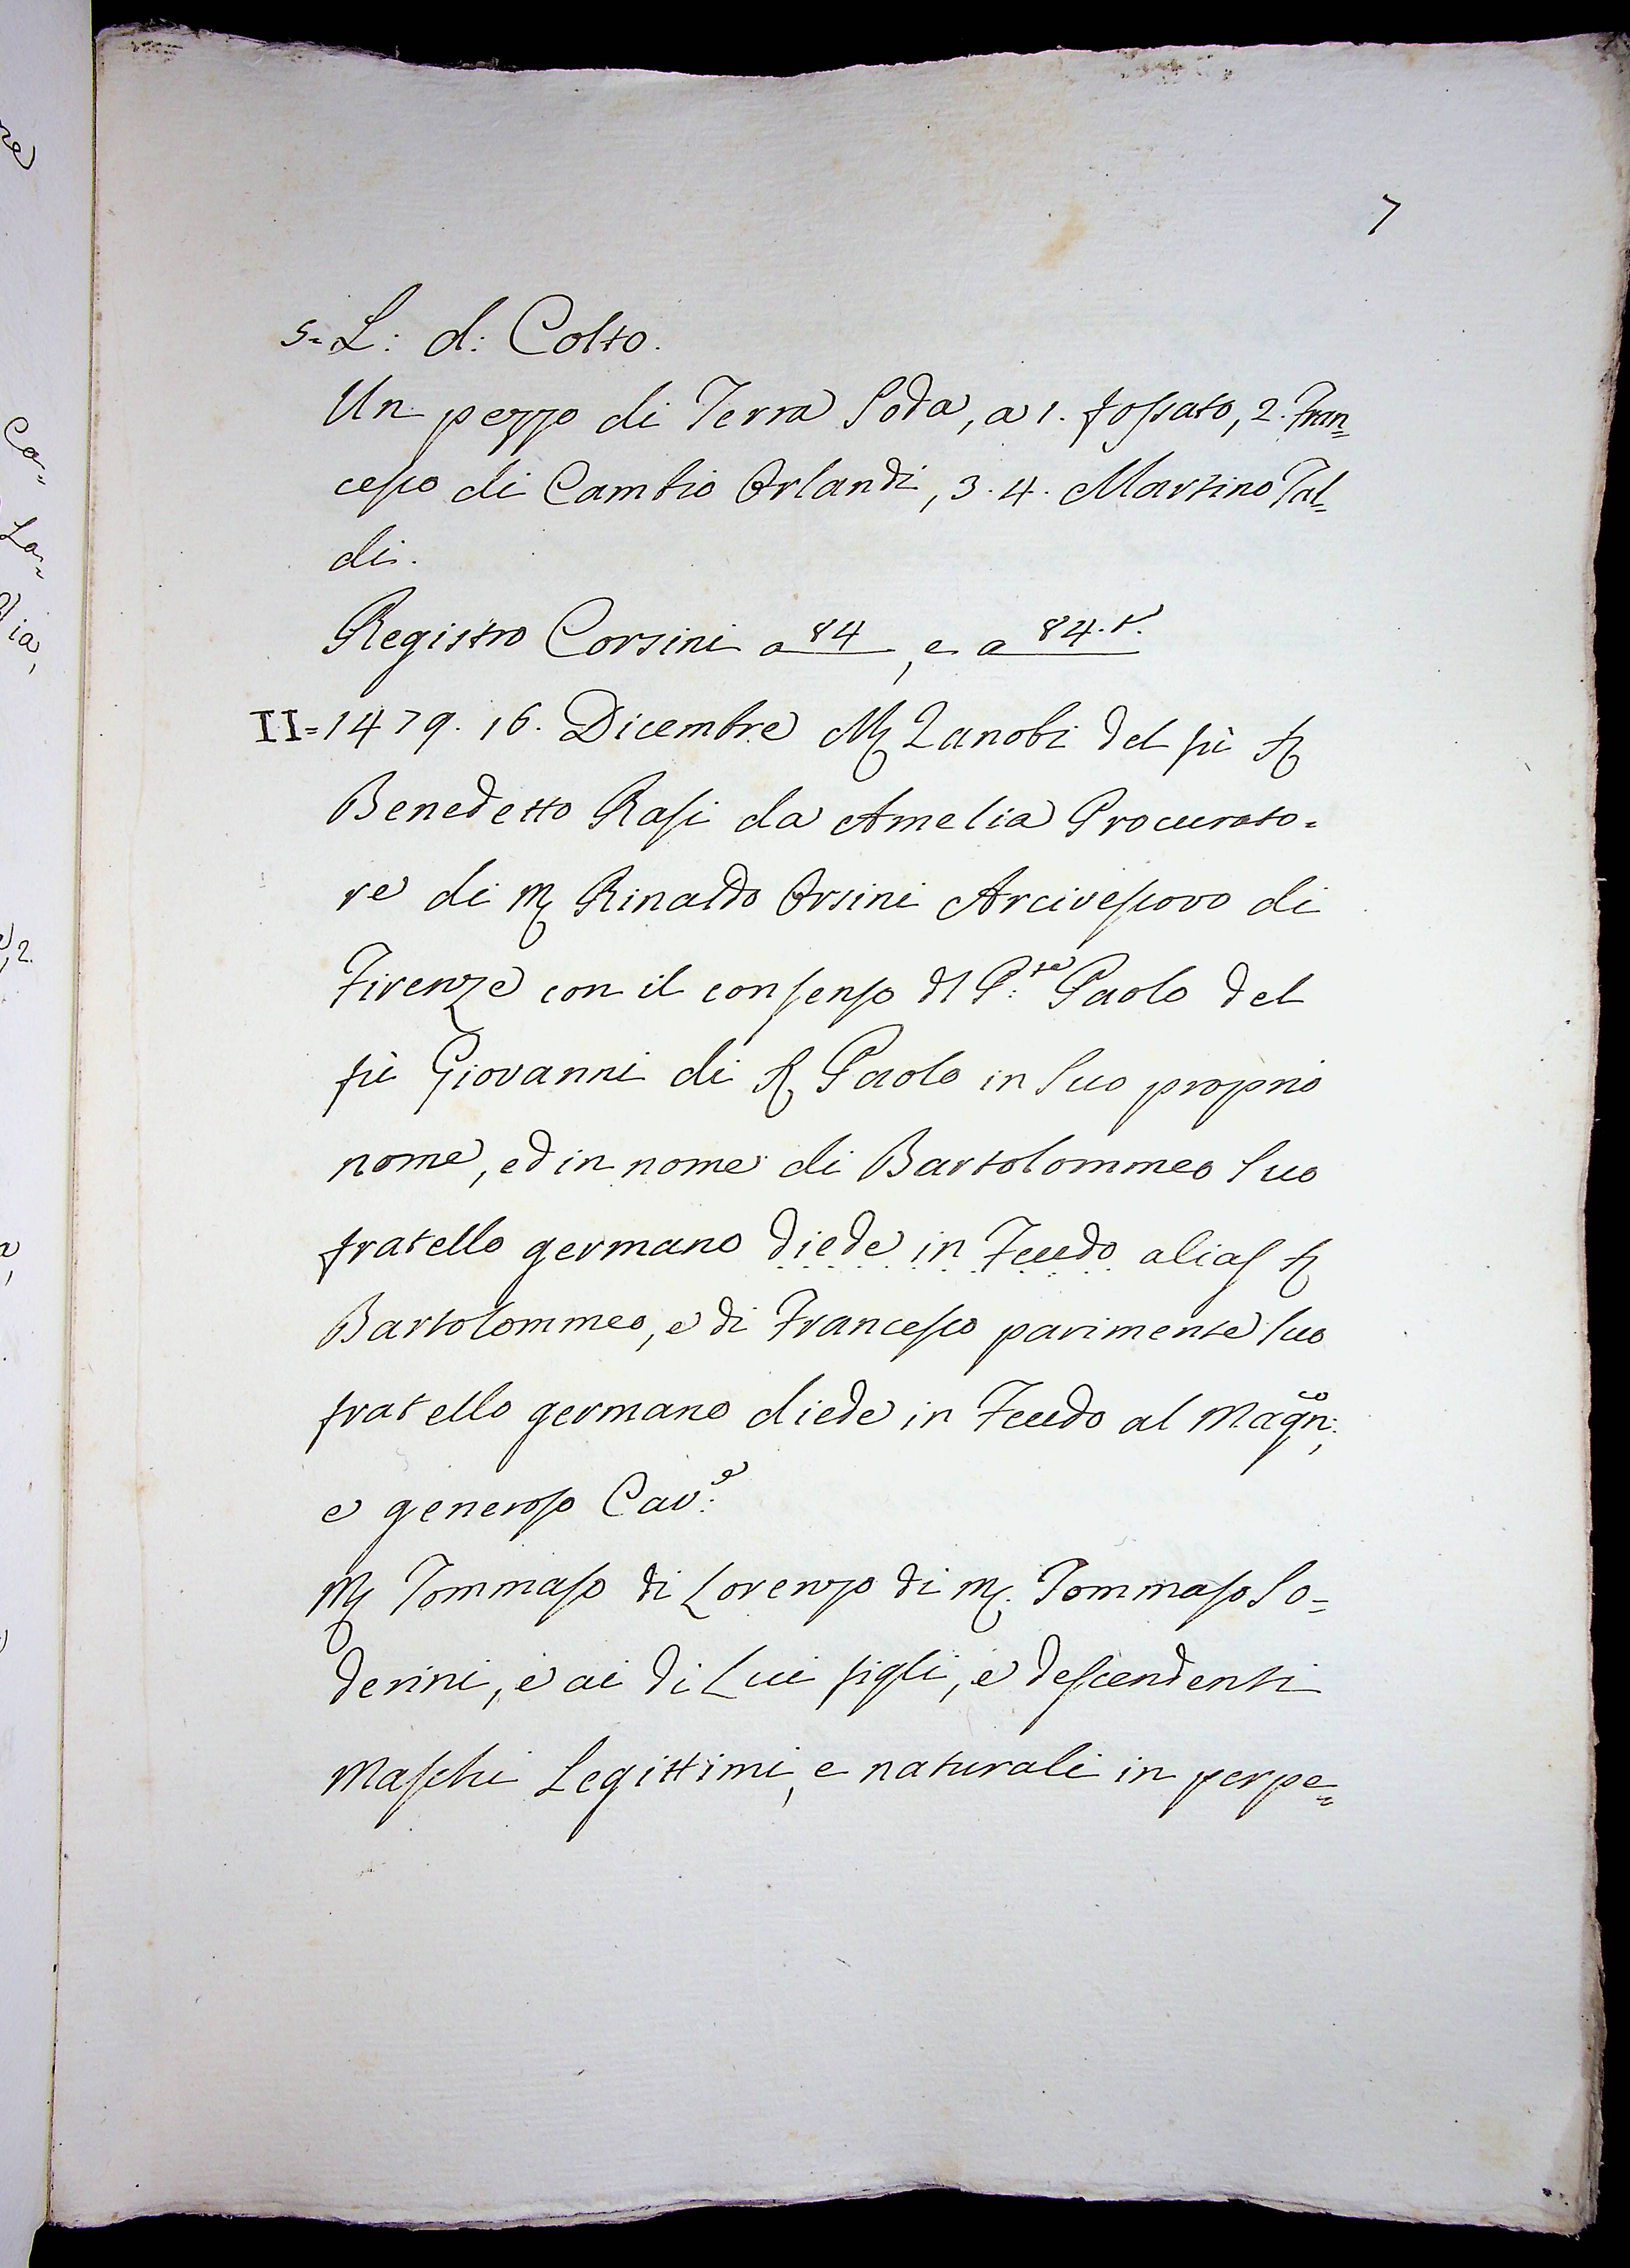 7
5=L: d: Colto.
Un pezzo di Terra Soda, a 1. fossato, 2. Fran=
cesco di Cambio Orlandi, 3. 4. Martino Tal=
di.
Registro Corsini a 84, e a 84.t.
II=1479. 16. Dicembre M Zanobi del fù S
Benedetto Rasi da Amelia Procurato=
re di M Rinaldo Orsini Arcivescovo di
Firenze con il consenso dl P:te Paolo del
fù Giovanni di S Paolo in Suo proprio
nome, ed in nome di Bartolommeo Suo
fratello germano diede in Feudo alias S
Bartolommeo, e di Francesco parimente Suo
fratello germano diede in Feudo al Magn:co,
e generoso Cav:e
M Tommaso di Lorenzo di M. Tommaso So=
derini, e ai di Lui figli, e descendenti
Maschi Legittimi, e naturali in perpe=
Co=
La=
ia,
2.